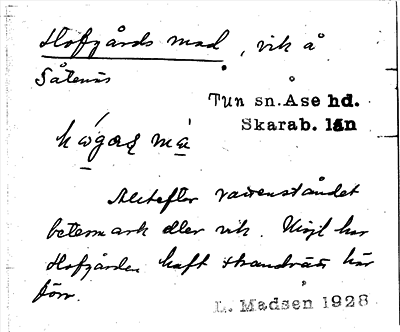 Hofgårds mad, vik å
Såtenäs
Tun sn. Åse hd.
Skarab. län
Alltefter vattenståndet
betesmark eller vik. har
Hofgården haft strandrätt här
förr.
L. Madsen 1928